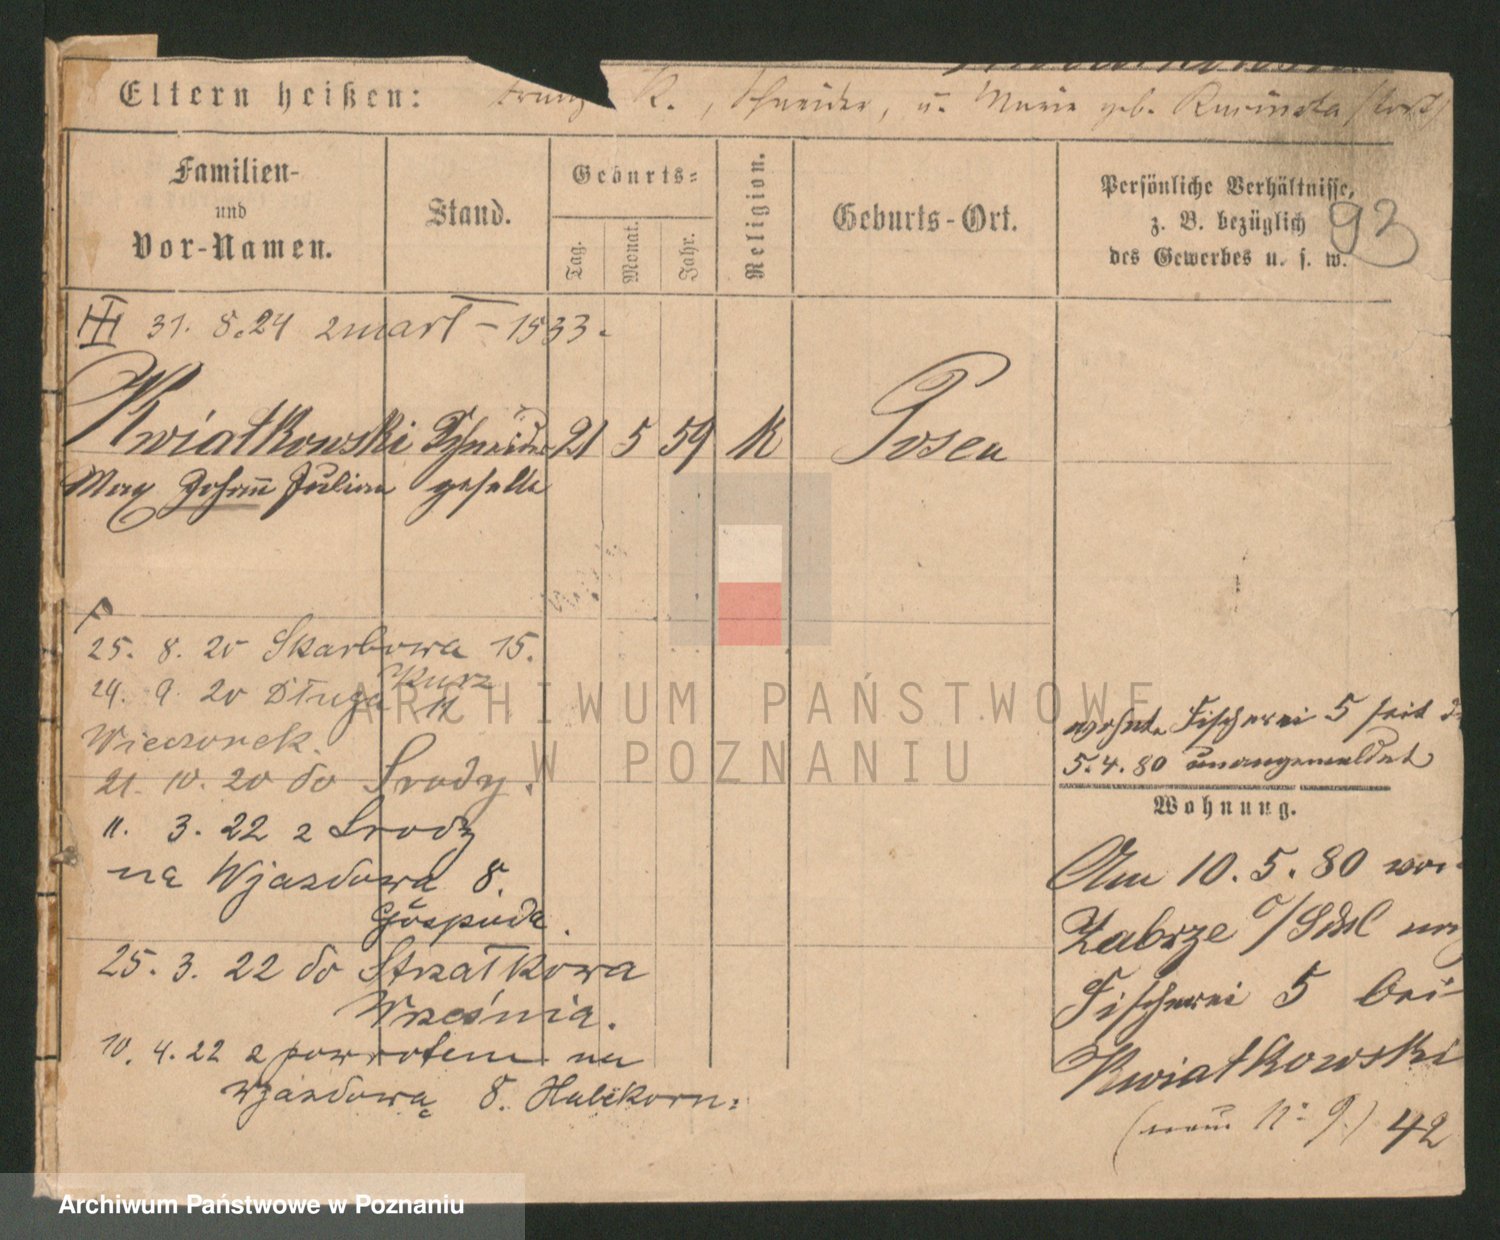 Eltern heißen: Franz K., Schneider, u. Marie geb. Rusinska
Familien-
und
Vor-Namen.
Stand.
Geburts-
Tag.
Monat.
Jahr.
Religion.
Geburts-Ort.
Persönliche Verhältnisse,
z. B. bezüglich
des Gewerbes u. s. w.
93
31. 8. 24 zmarł - 1533.
Kwiatkowski Schneider 21 5 59 K Posen
Max Johann Julian geselle
25. 8. 20 Skarbowa 15.
Kurz
24. 9. 20 Długa 11
Wieczorek.
21. 10. 20 do Środy.
11. 3. 22 z Środy
na Wjazdową 8.
Gospoda.
25. 3. 22 do Strzałkowa
Września.
10. 4. 22 z powrotem na
Wjazdową 8. Habekorn:
wohnte Fischerei 5 seit
5. 4. 80 unangemeldet
Wohnung.
Am 10. 5. 80 von
Zabrze O/Schl
Fischerei 5 bei
Kwiatkowski
(neu N: 9) 42
ARCHIWUM PAŃSTWOWE
W POZNANIU
Archiwum Państwowe w Poznaniu